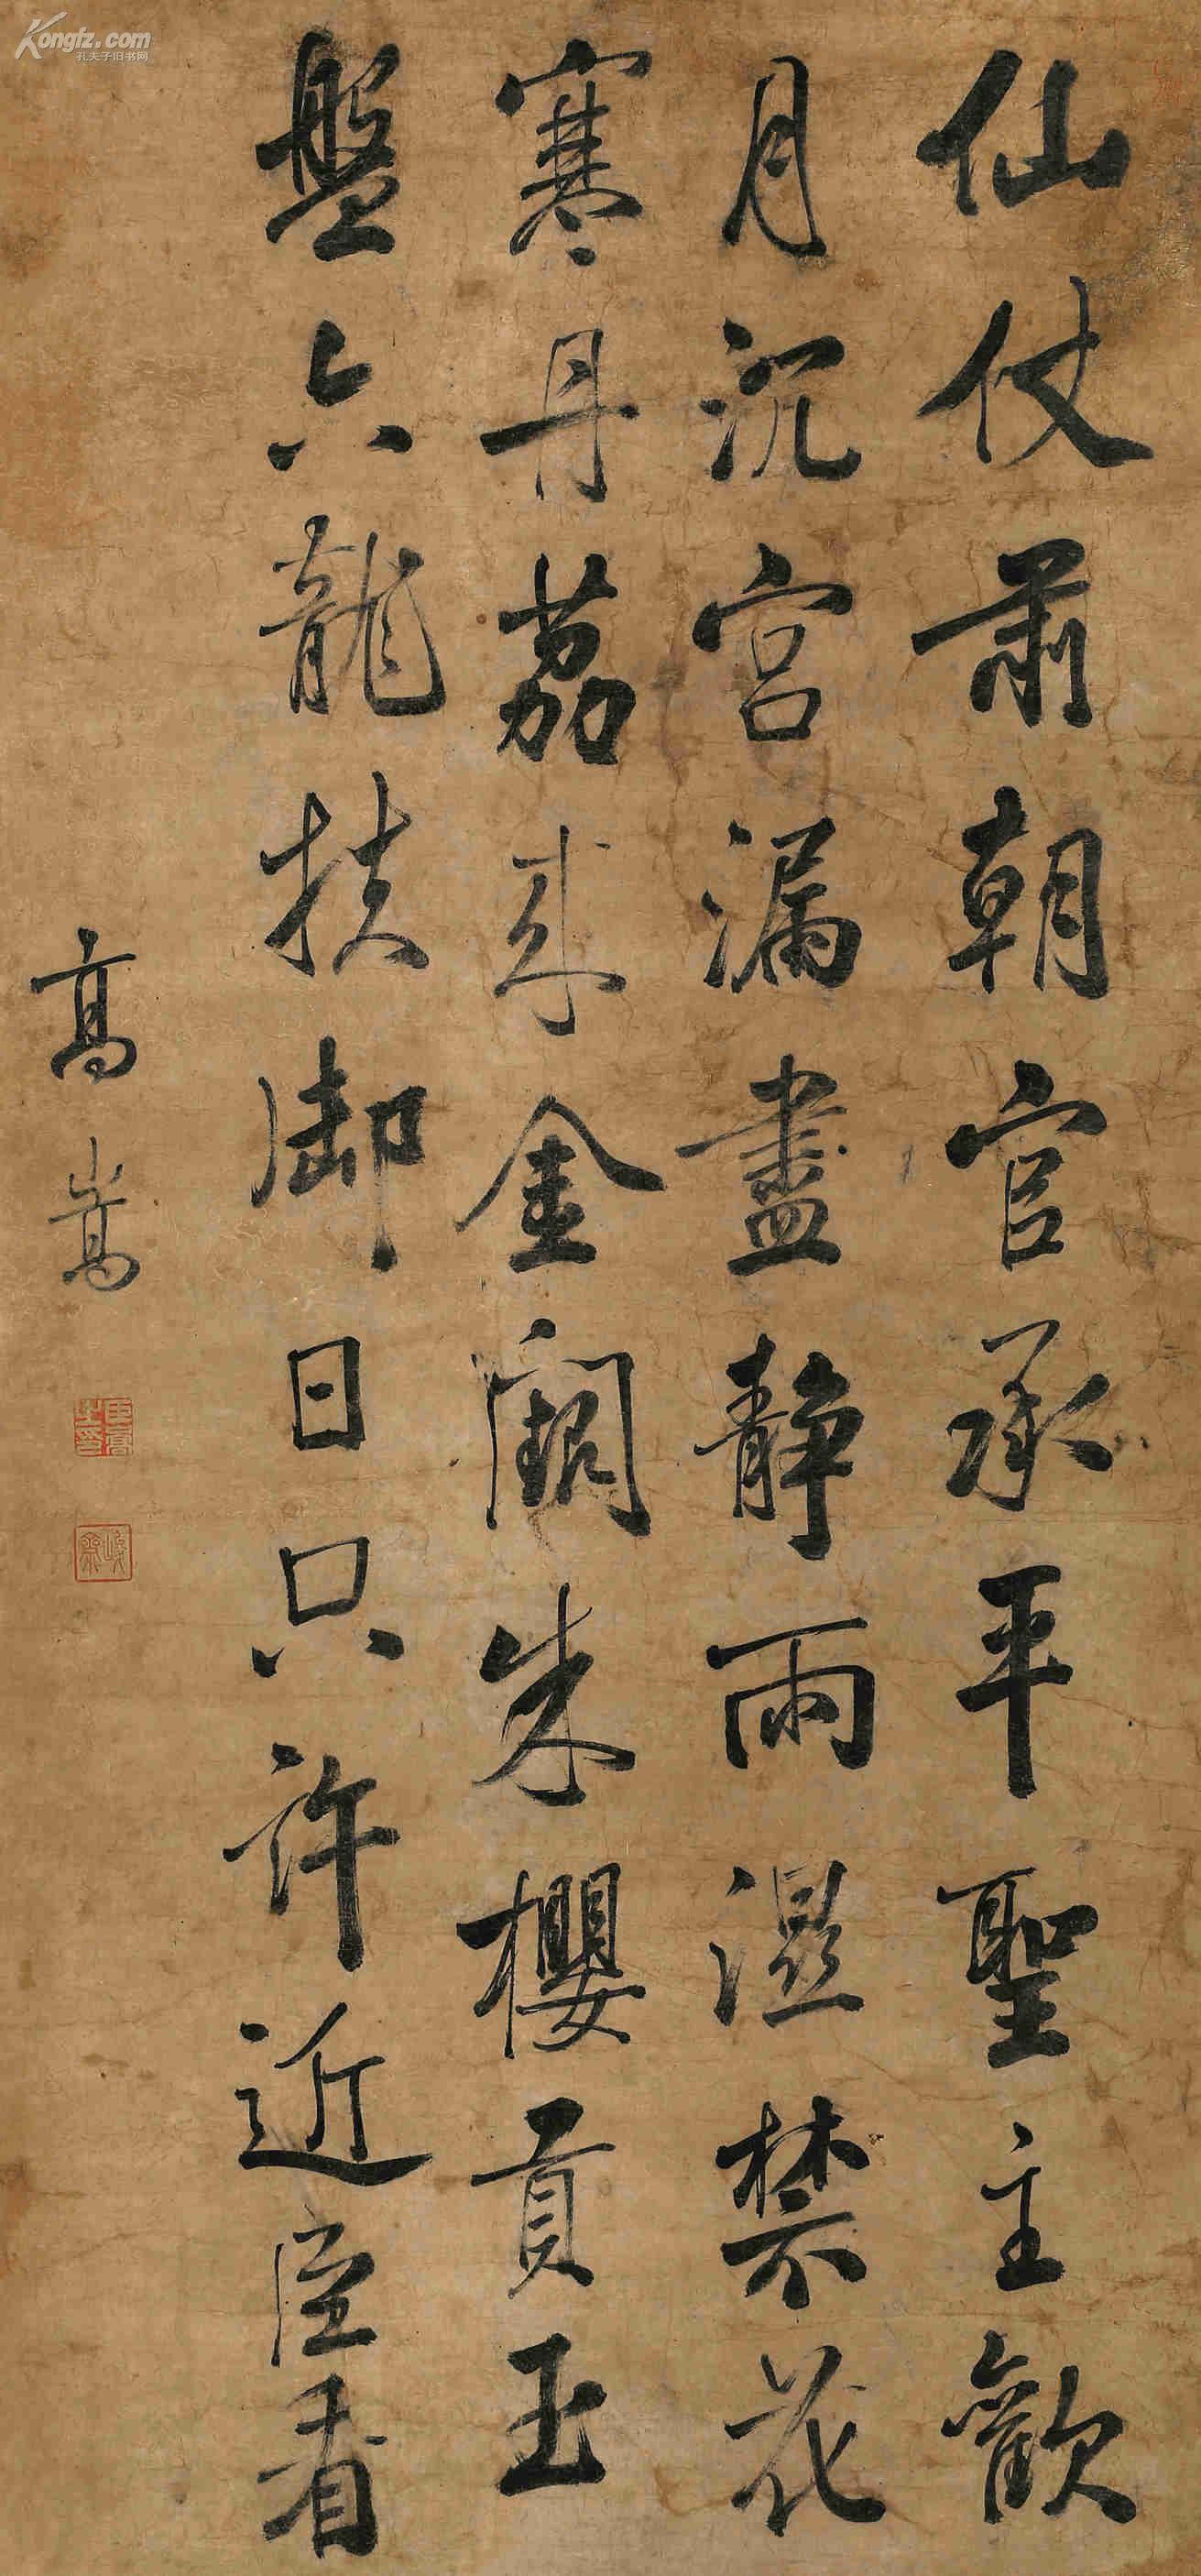 仙仗肅朝官承平聖主歡
月沉宮漏盡靜雨濕禁花
寒丹荔來金闕朱櫻貢玉
盤六龍扶御日只許近臣看
高嵩
Kongfz.com
孔夫子旧书网